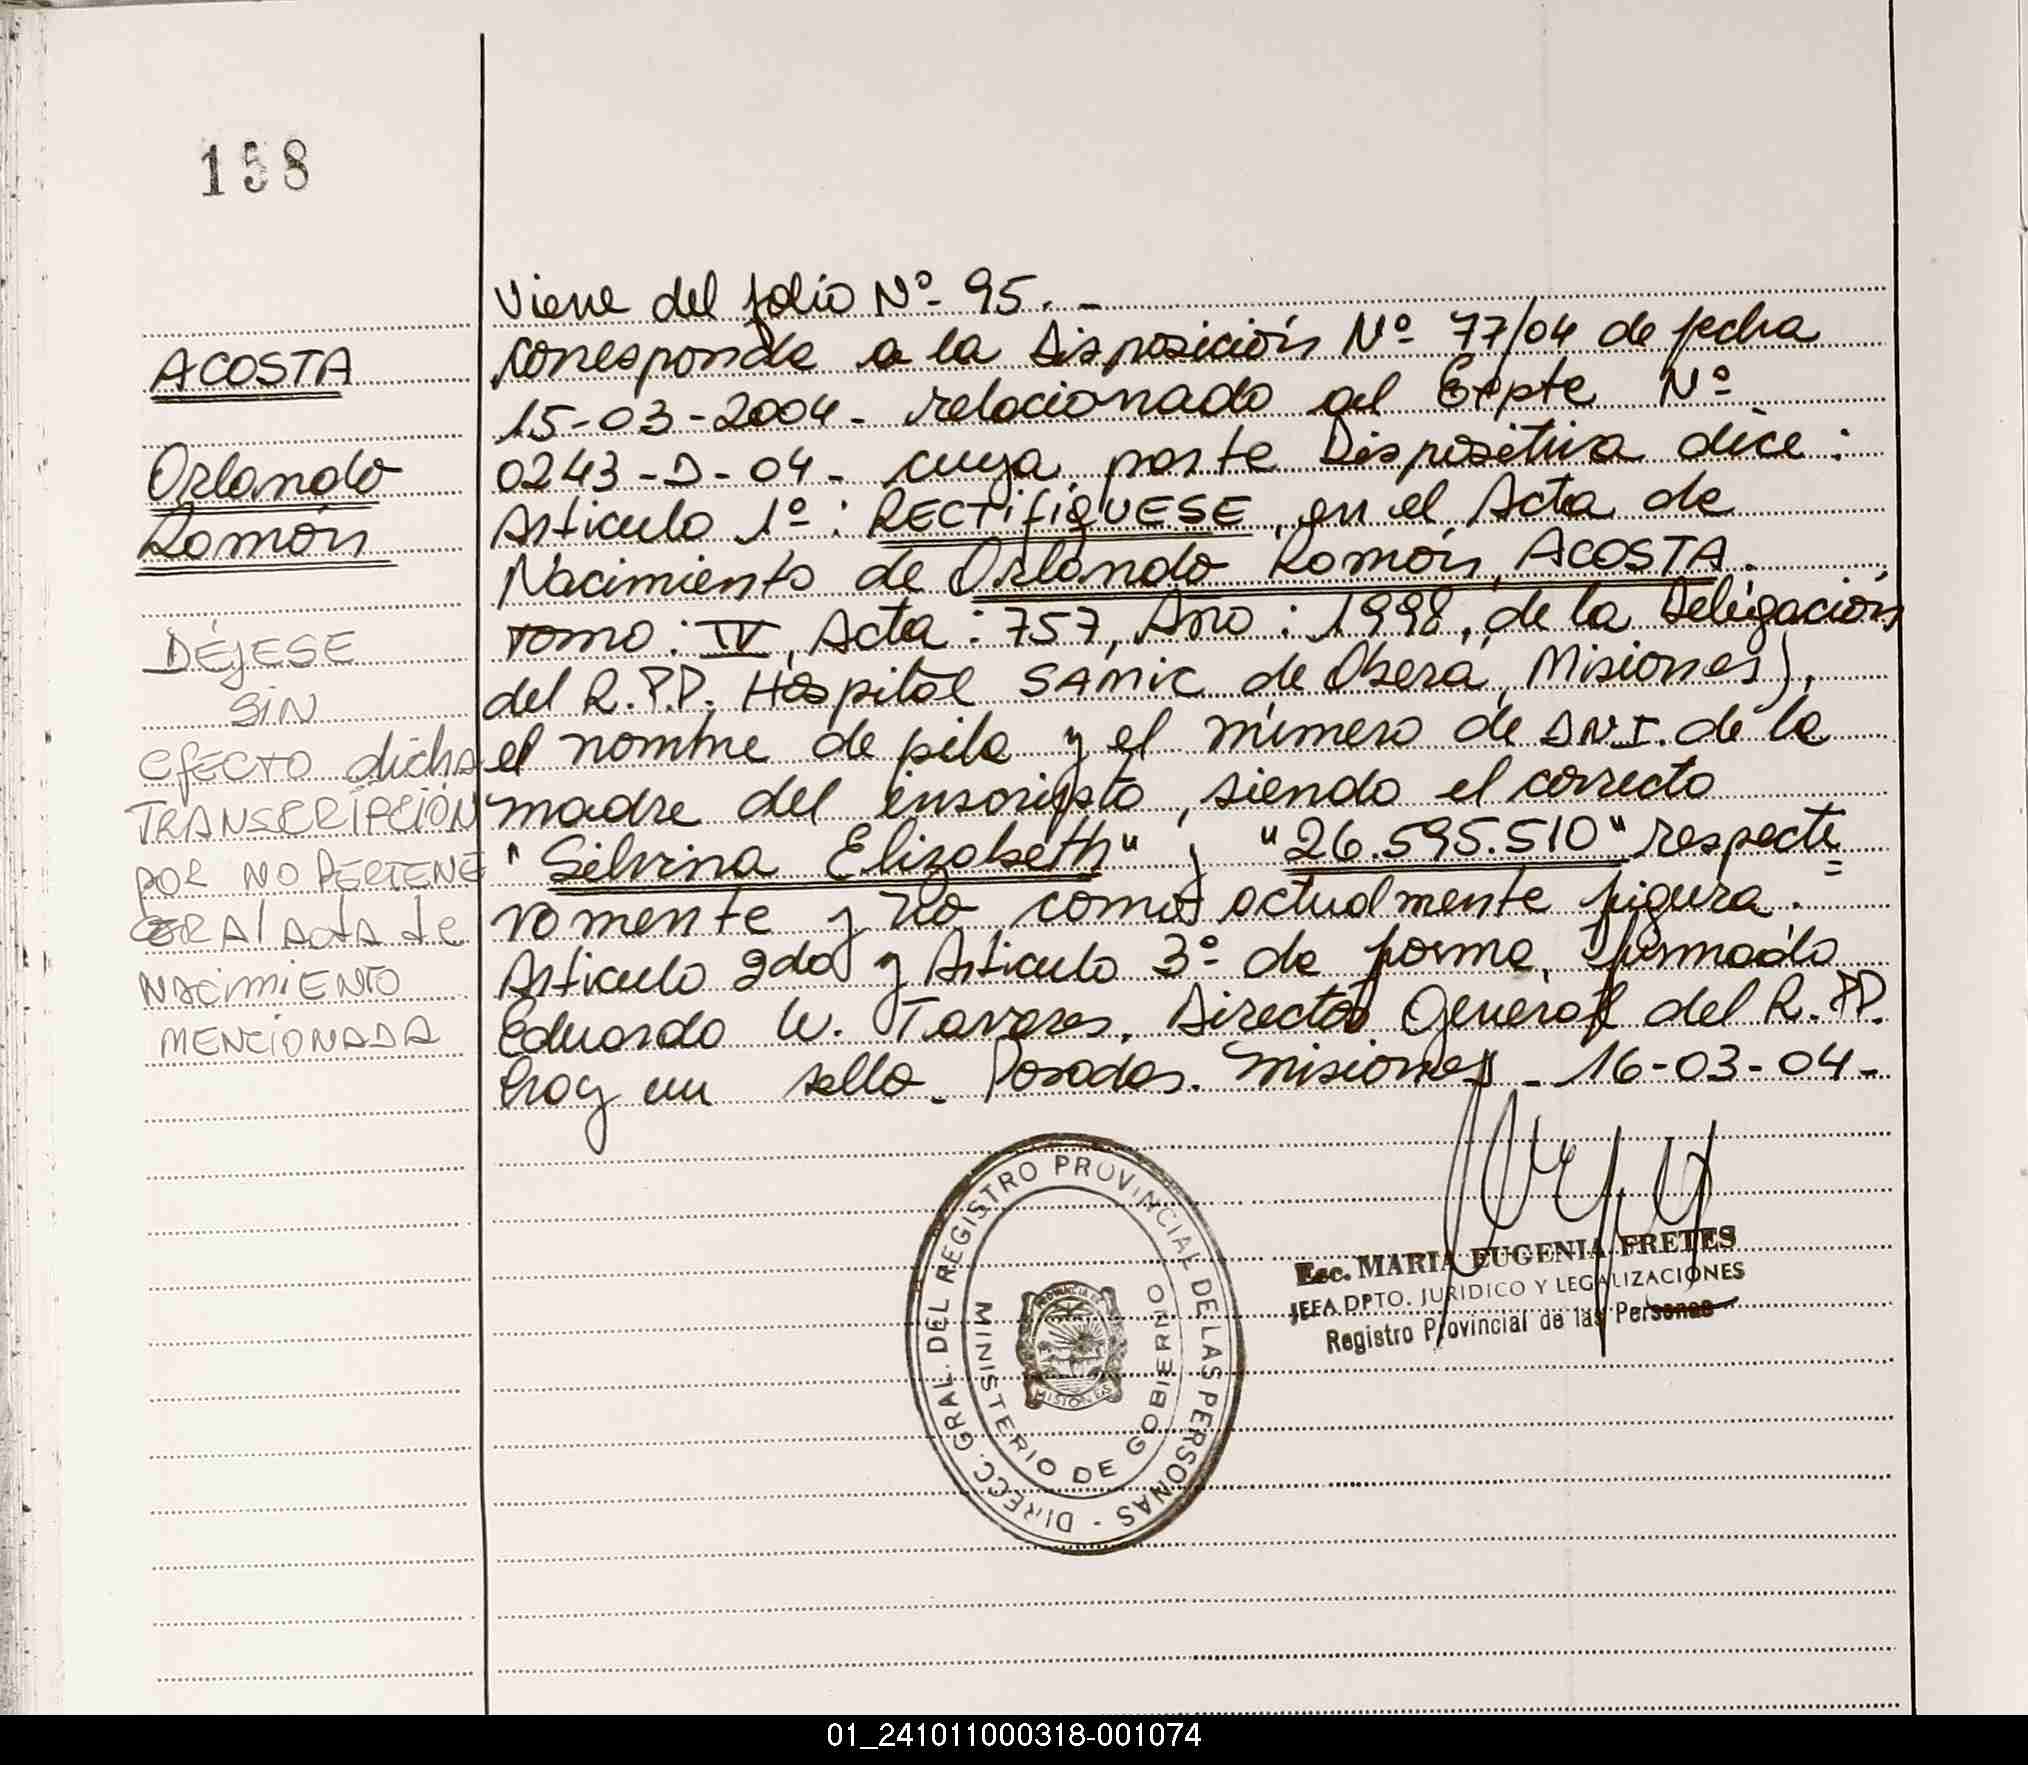 158
ACOSTA
Orlando
Ramón
DÉJESE
SIN
EFECTO dicha
TRANSCRIPCIÓN
POR NO PERTENE
CER Al Acta de
NACIMIENTO
MENCIONADA
Viene del folio Nº 95.-
corresponde a la Disposición Nº 77/04 de fecha
15-03-2004- relacionado al Expte Nº
0243-D-04- cuya parte Dispositiva dice:
Articulo 1º: RECTIFIQUESE, en el Acta de
Nacimiento de Orlando Ramón, ACOSTA.
Tomo: IV, Acta: 757, Año: 1998, de la Delegación
del R.P.P. Hospital SAMIC de Oberá, Misiones),
el nombre de pila y el número de D.N.I. de la
madre del inscripto, siendo el correcto
"Silvina Elizabeth" y "26.595.510" respecti=
vamente y No como actualmente figura.
Articulo 2do y Articulo 3º de forma, firmado
Eduardo W. Tavares. Director General del R.P.P.
Hay un sello. Posadas. Misiones - 16-03-04-
DIRECC. GRAL. DEL REGISTRO PROVINCIAL DE LAS PERSONAS -
MINISTERIO DE GOBIERNO
MISIONES
Esc. MARIA EUGENIA FRETES
JEFA DPTO. JURIDICO Y LEGALIZACIONES
Registro Provincial de las Personas
01_241011000318-001074